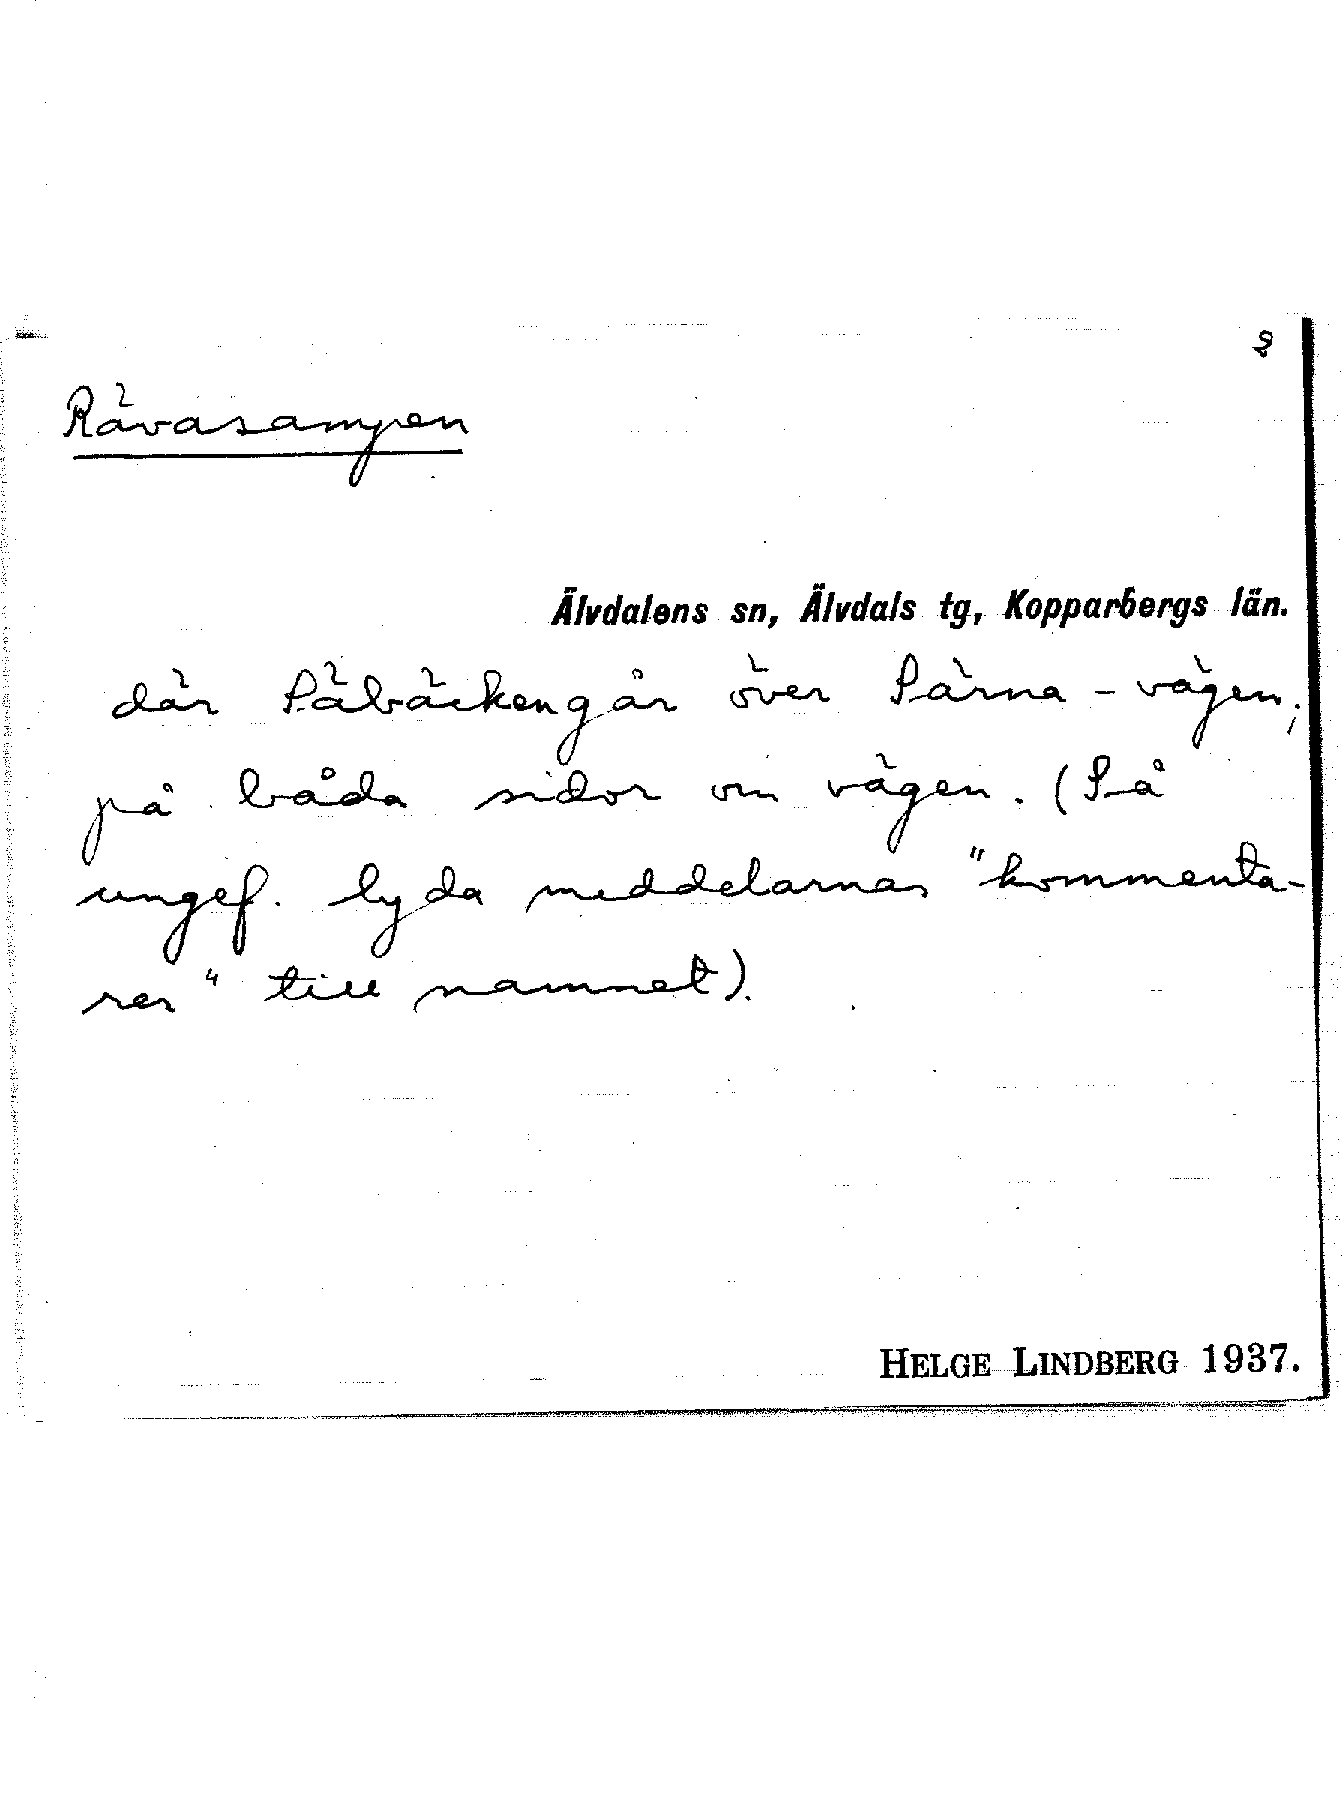 2
Rävasampen
Älvdalens sn, Älvdals tg, Kopparbergs län.
där Säbäcken går över Särna-vägen;
på båda sidor om vägen. (Så
ungef. lyda meddelarnas "kommenta-
rer" till namnet).
HELGE LINDBERG 1937.